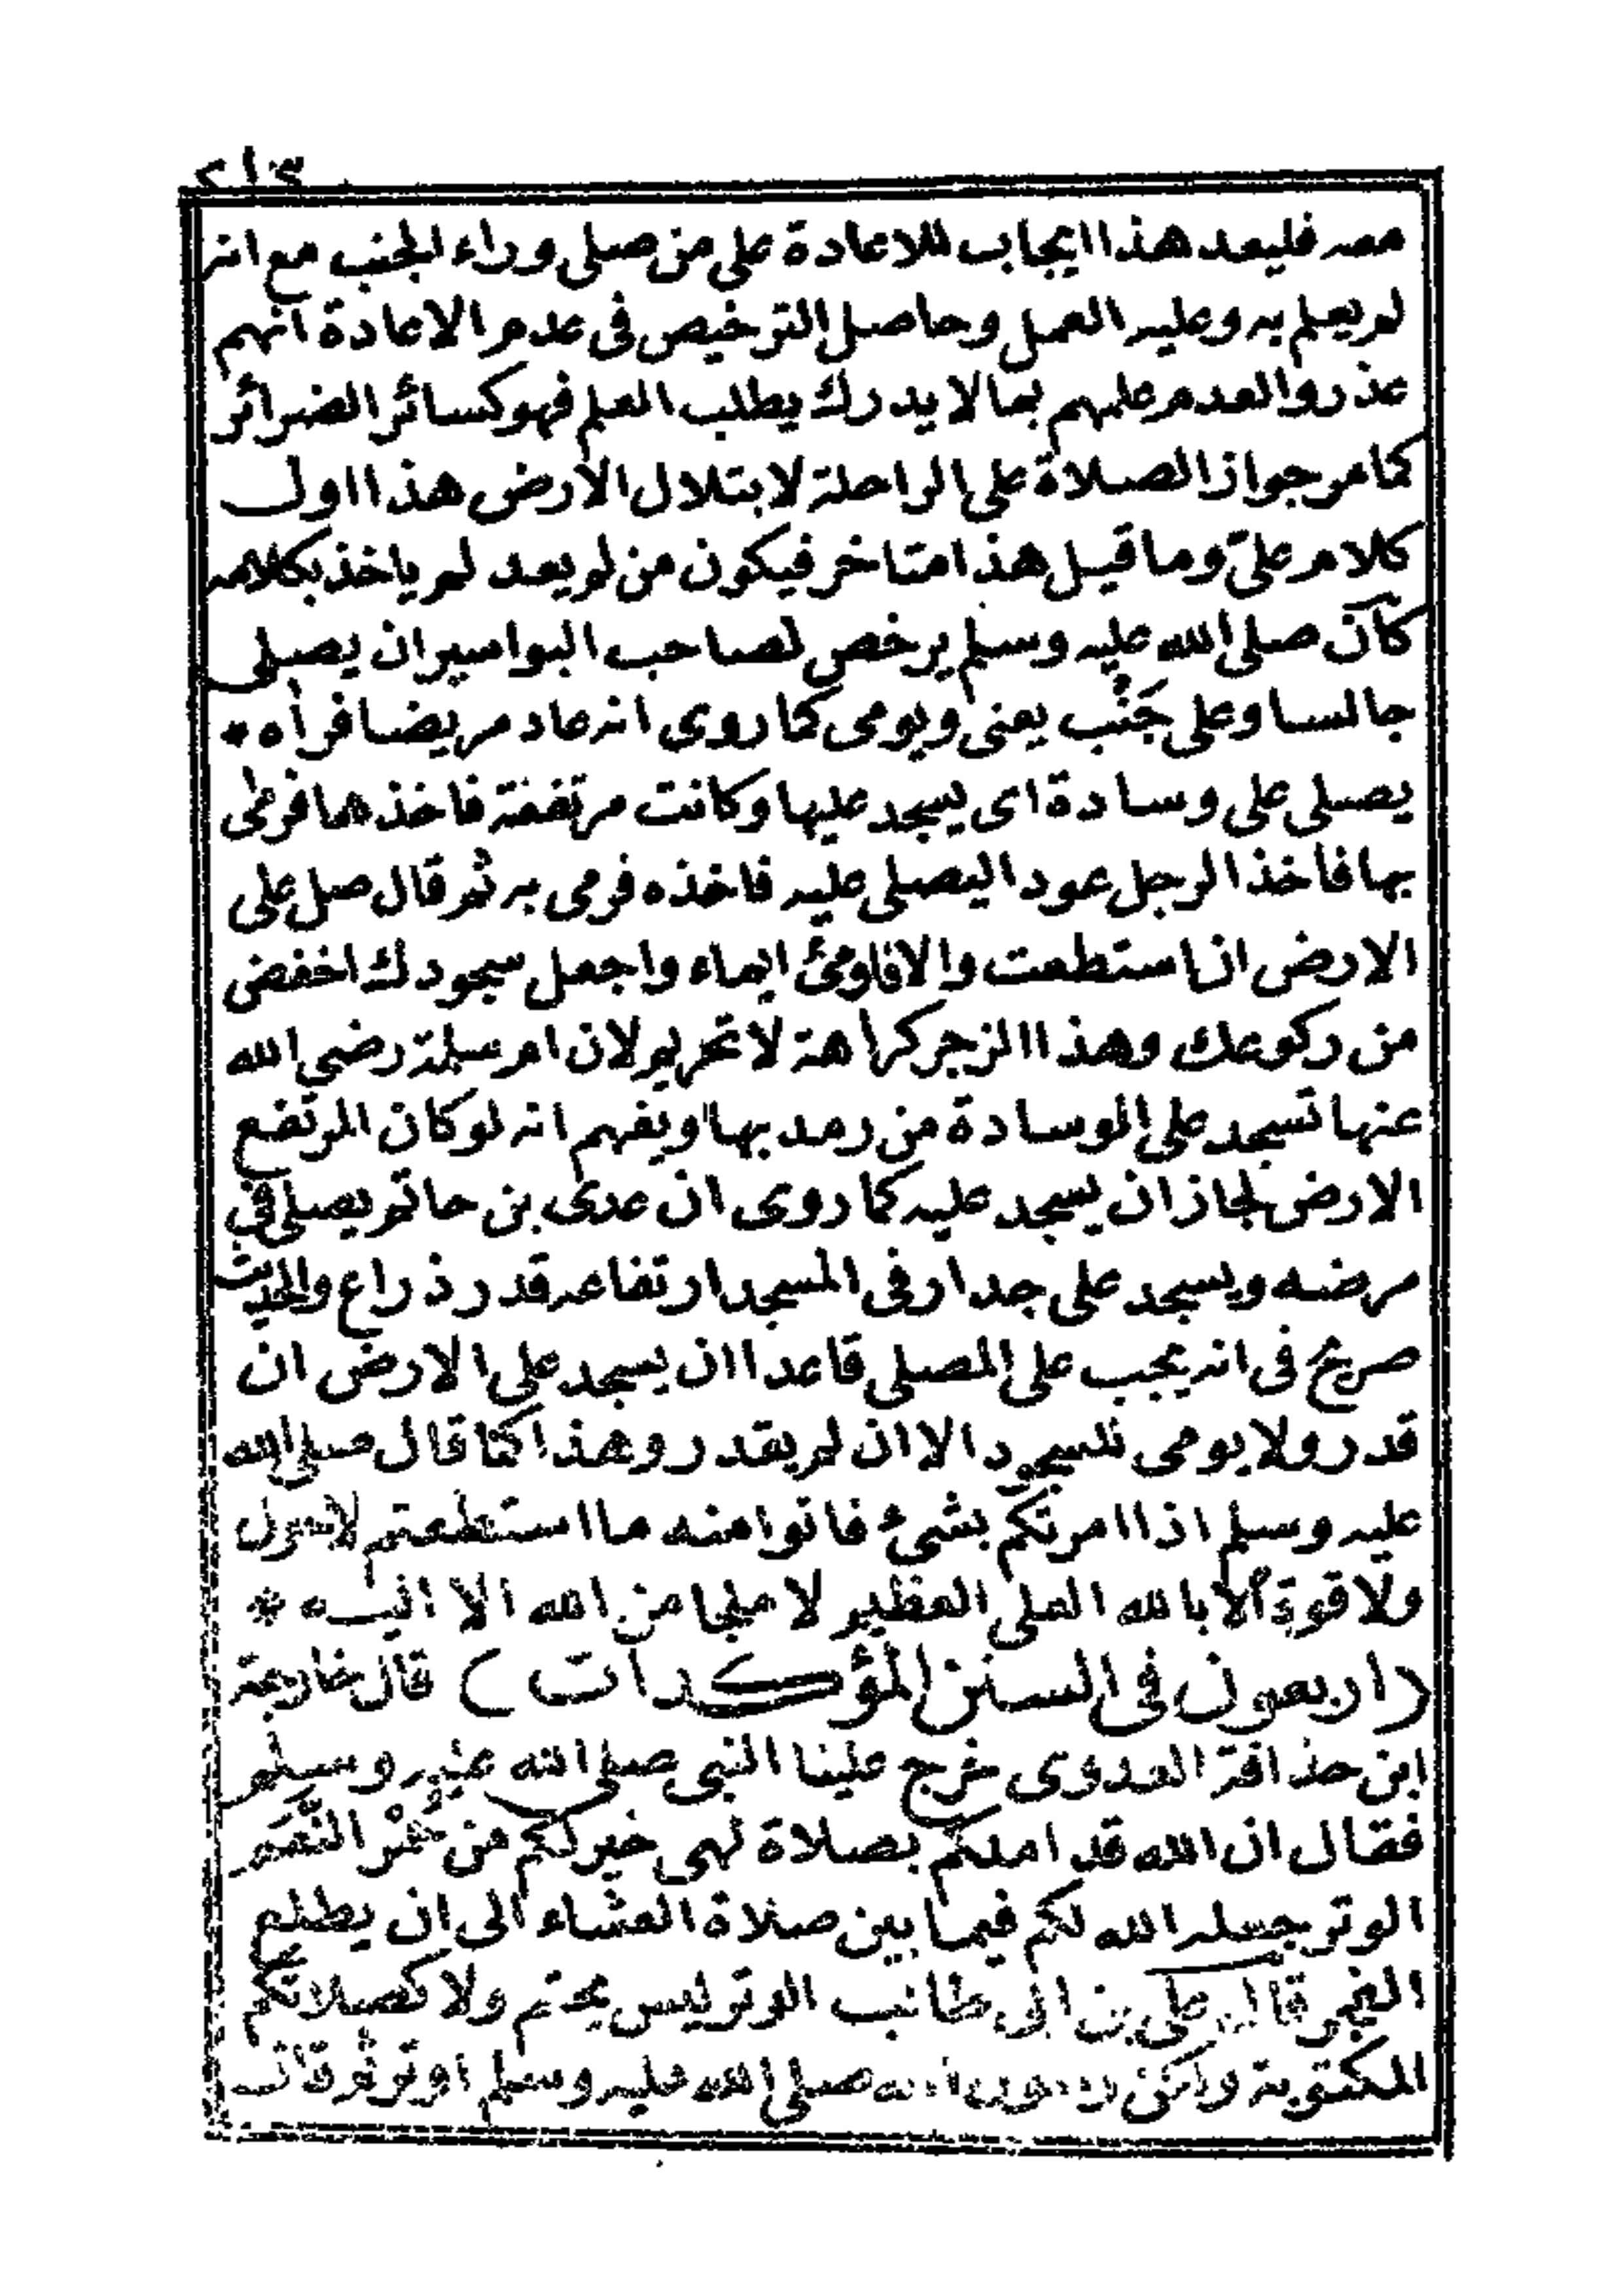 ٢١٣
معه فليعد هذا ايجاب للاعادة على من صلى وراء الجنب مع انه
لم يعلم به وعليه العمل وحاصل الترخيص فى عدم الاعادة انهم
عذروا لعدم علمهم بما لا يدرك بطلب العلم فهو كسائر الضرائر
كما مر جواز الصلاة على الراحلة لابتلال الارض هذا اول
كلام علىّ وما قيل هذا متاخر فيكون من لم يعد لم ياخذ بكلامه
كان صلى الله عليه وسلم يرخص لصاحب البواسير ان يصلى
جالسا وعلى جَنْب يعنى ويومى كما روى انه عاد مريضا فرآه *
يصلى على وسادة اى يسجد عليها وكانت مرتفعة فاخذها فرمى
بها فاخذ الرجل عودا ليصلى عليه فاخذه فرمى به ثم قال صل على
الارض ان استطعت والا فاومئ ايماء واجعل سجودك اخفض
من ركوعك وهذا الزجر كراهة لا تحريم لان ام سلمة رضى الله
عنها تسجد على الوسادة من رمد بها ويفهم انه لو كان المرتفع
الارض لجاز ان يسجد عليه كما روى ان عدى بن حاتم يصلى فى
مرضه ويسجد على جدار فى المسجد ارتفاعه قدر ذراع والحديث
صريح فى انه يجب على المصلى قاعدا ان يسجد على الارض ان
قدر ولا يومى للسجود الا ان لم يقدر وهذا كما قال صلى الله
عليه وسلم اذا امرتكم بشىء فاتوا منه ما استطعتم لا حول
ولا قوة الا بالله العلى العظيم لا ملجا من الله الا اليه *
(اربعون فى السنن المؤكدات) قال خارجة
ابن حذافة العدوى خرج علينا النبى صلى الله عليه وسلم
فقال ان الله قد امدكم بصلاة لهى خير لكم من حُمْر النَّعَم
الوتر جعله الله لكم فيما بين صلاة العشاء الى ان يطلع
الفجر قال على بن ابى طالب الوتر ليس بحتم ولا كصلاتكم
المكتوبة ولكن رسول الله صلى الله عليه وسلم اوتر ثم قال